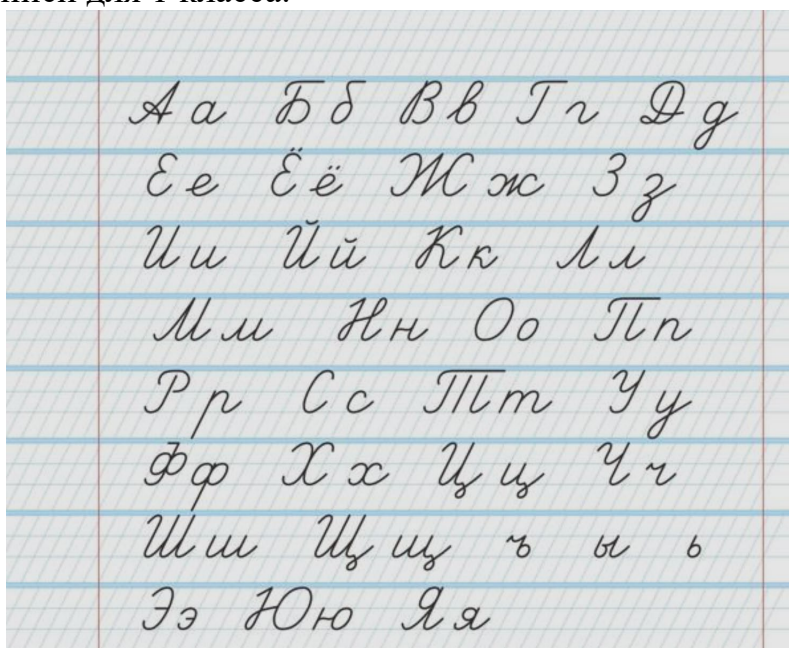 для 1 класса.
Аа Бб Вв Гг Дд
Ее Ёё Жж Зз
Ии Йй Кк Лл
Мм Нн Оо Пп
Рр Сс Тт Уу
Фф Хх Цц Чч
Шш Щщ ъ ы ь
Ээ Юю Яя